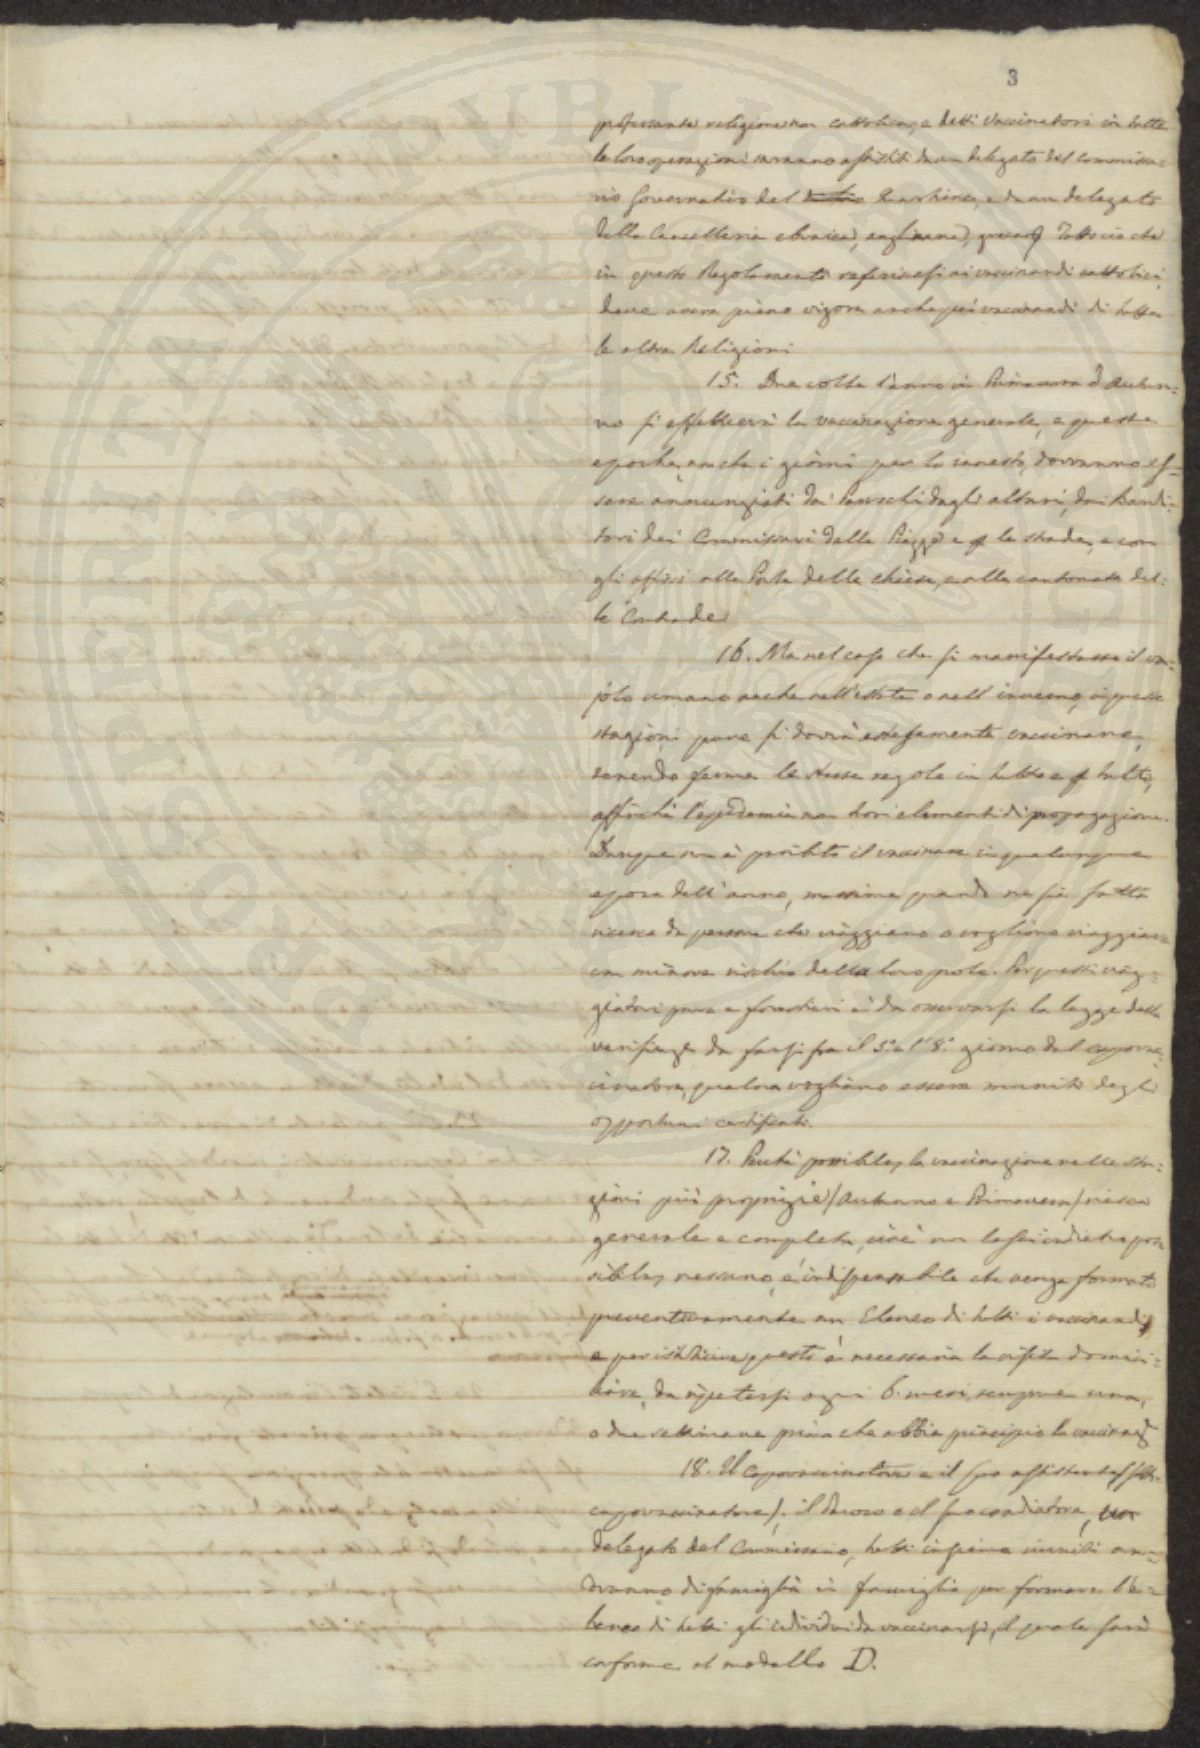 3
professanti religione non cattolica, e detti vaccinatori in tutte
le loro operazioni saranno assistiti da un delegato del Commissa-
rio Governativo del Quartiere, e da un delegato
della Cancelleria ebraica, anglicana, greca &. Tutto ciò che
in questo Regolamento riferiscesi ai vaccinandi cattolici
deve avere pieno vigore anche pei vaccinandi di tutte
le altre Religioni
15. Due volte l'anno in Primavera ed Autun-
no si effettuerà la vaccinazione generale, e queste
epoche, anche i giorni per lo innesto, dovranno es-
sere annunziati dai Parrochi dagli altari, dai Bandi-
tori dei Commissari dalle Piazze e p le strade, e con
gli affissi alle Porte delle chiese, e alle cantonate del-
le Contrade
16. Ma nel caso che si manifestasse il va-
jolo umano anche nell'estate o nell'inverno, in queste
stagioni pure si dovrà estesamente vaccinare,
tenendo ferme le stesse regole in tutto e p tutto,
affinchè l'epidemia non trovi elementi di propagazione.
Dunque non è proibito il vaccinare in qualunque
epoca dell'anno, massime quando ne sia fatta
ricerca da persone che viaggiano o vogliono viaggiare
con minore rischio della loro pelle. Per questi viag-
giatori pure e forestieri è da osservarsi la legge della
verifica da farsi fra il 5.º e l'8.º giorno dal capovac-
cinatore, qualora vogliano essere muniti degli
opportuni certificati.
17. Perchè possibilm. la vaccinazione nelle sta-
gioni più propizie (Autunno e Primavera) riesca
generale e completa, cioè non lasci indietro pos-
sibilm. nessuno, è indispensabile che venga formato
preventivamente un Elenco di tutti i vaccinandi
e per istituire questo è necessaria la visita domici-
liare, da ripetersi ogni 6. mesi, sempre una,
o due settimane prima che abbia principio la vaccinaz.
18. Il Capovaccinatore e il suo assistente (sotto-
capovaccinatore), il Parroco o il suo coadiutore, un
delegato del Commissario, tutti insieme riuniti an-
dranno di famiglia in famiglia per formare l'e-
lenco di tutti gli individui da vaccinarsi, il quale sarà
conforme al modello D.